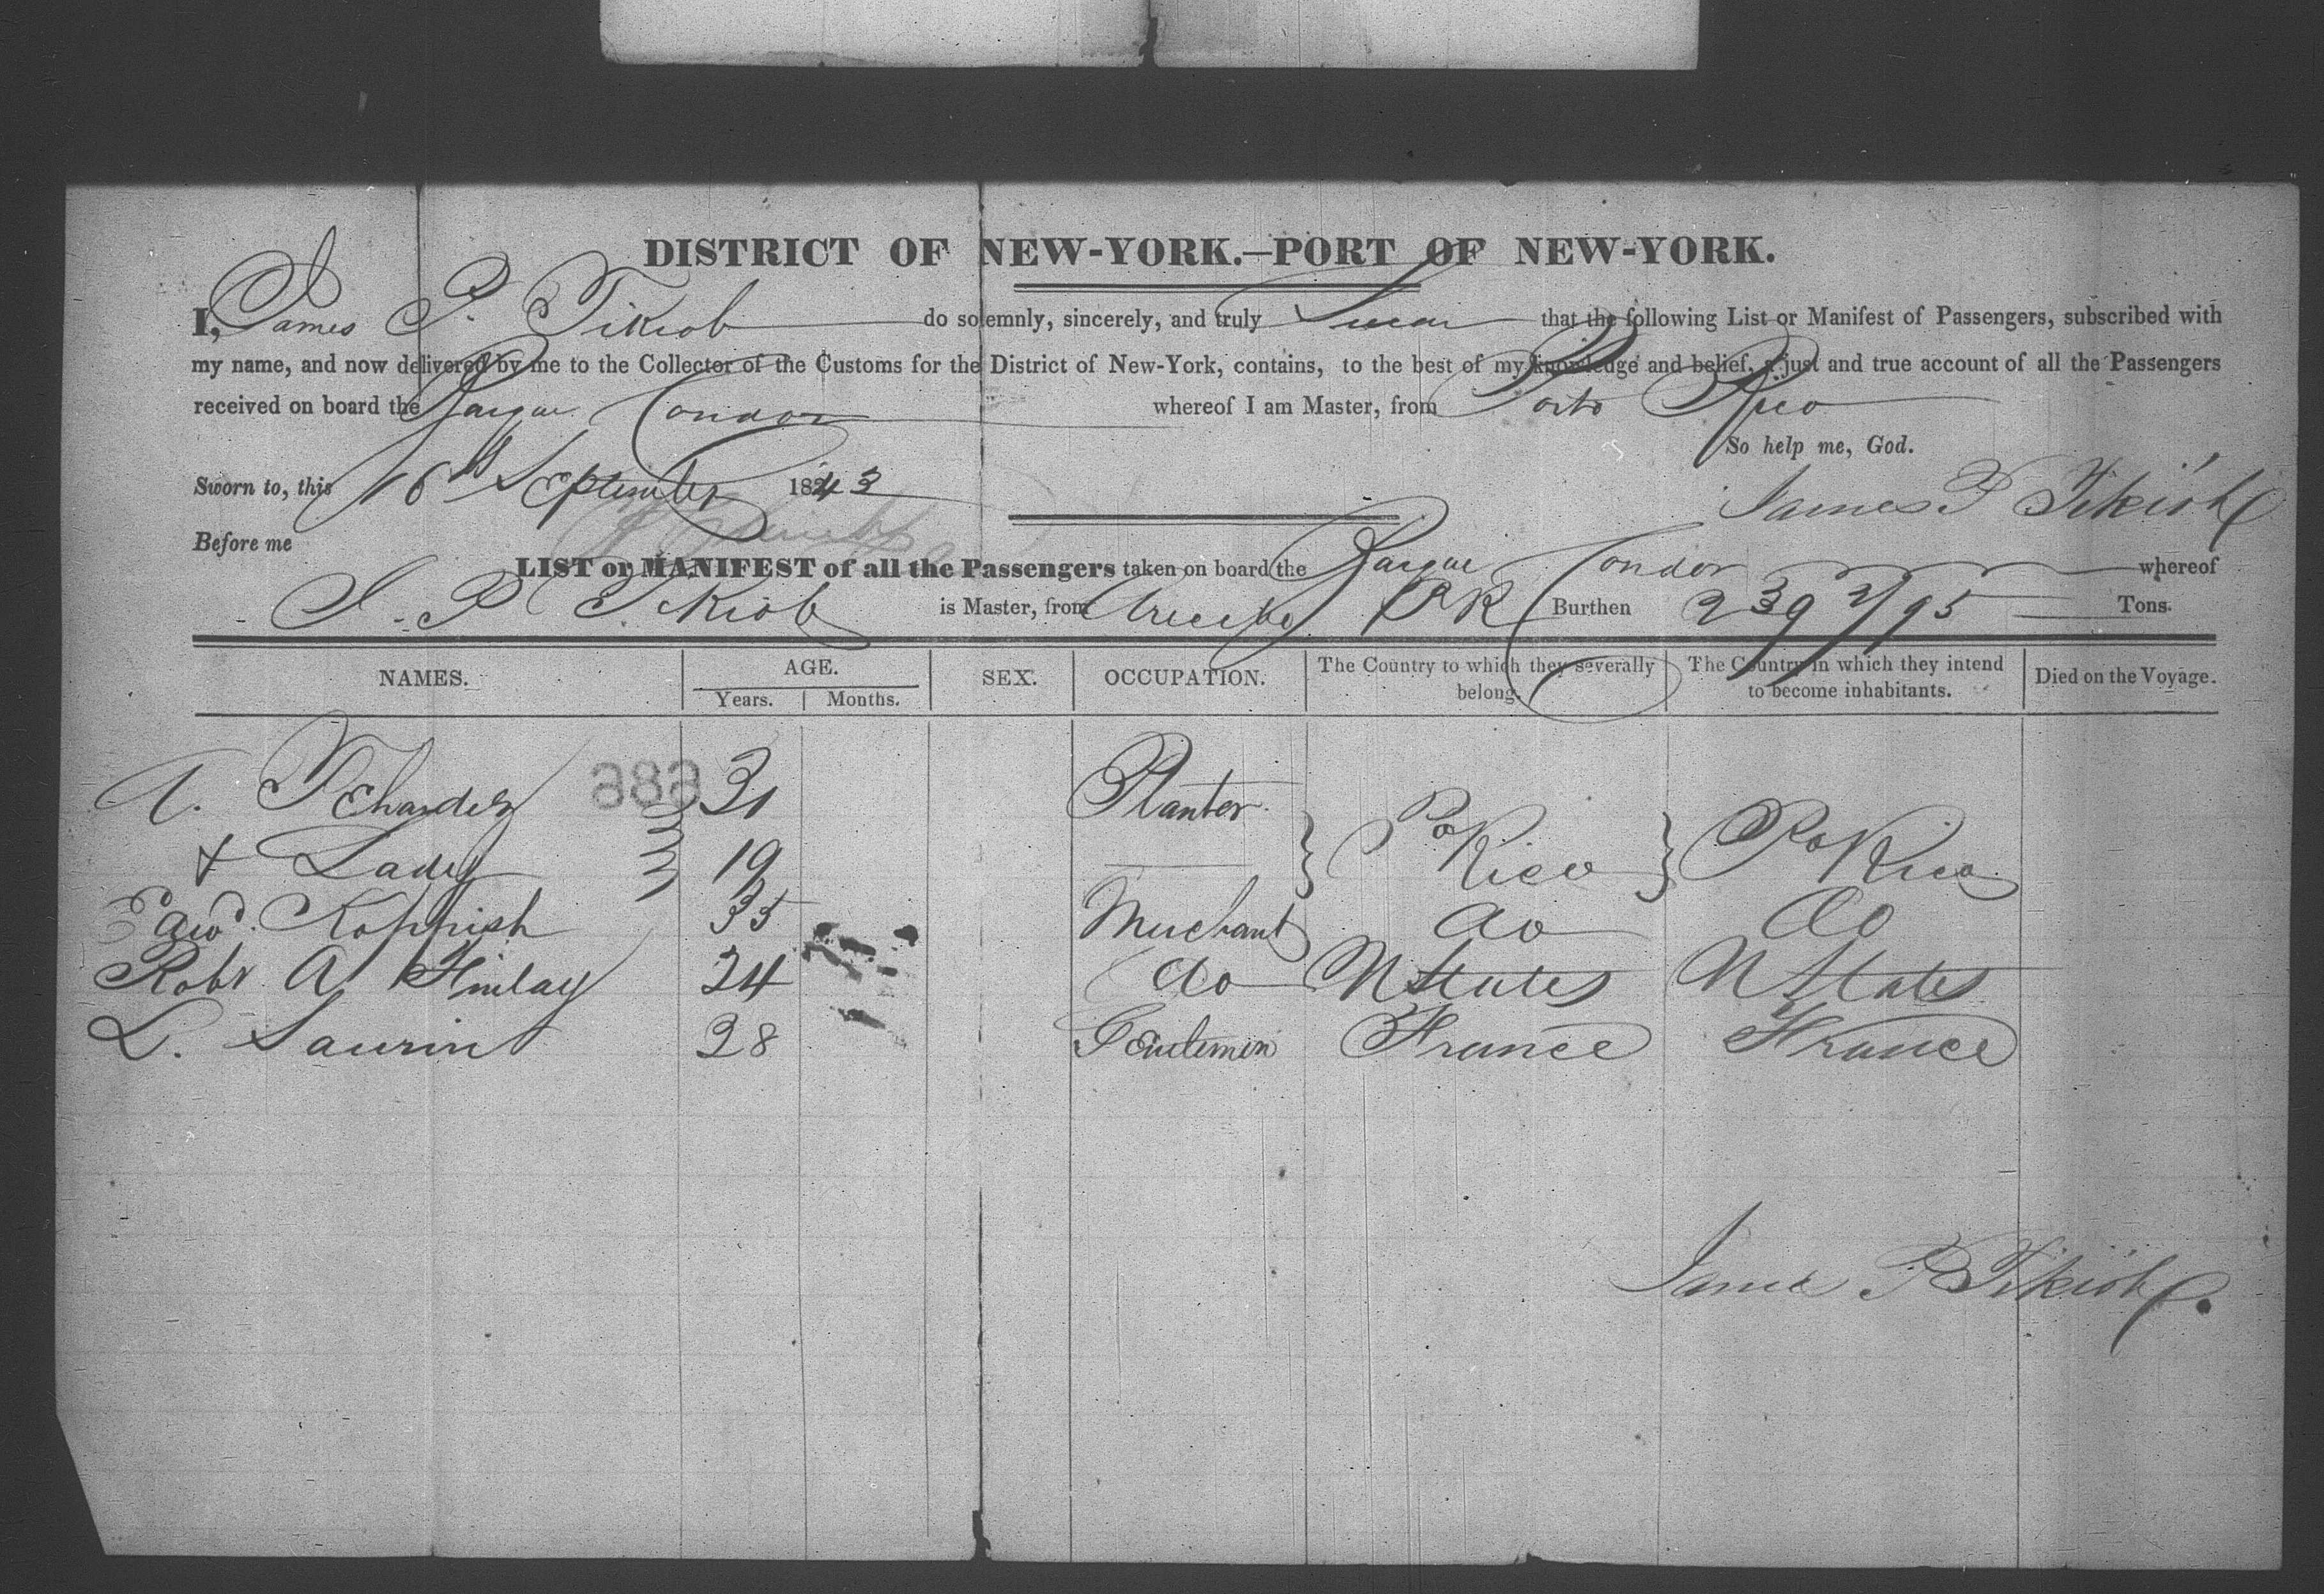 DISTRICT OF NEW-YORK.—PORT OF NEW-YORK.
I, James P. Tikiob do solemnly, sincerely, and truly Swear that the following List or Manifest of Passengers, subscribed with
my name, and now delivered by me to the Collector of the Customs for the District of New-York, contains, to the best of my knowledge and belief, a just and true account of all the Passengers
received on board the Barque Condor whereof I am Master, from Porto Rico
So help me, God.
Sworn to, this 16th September 1843
James P Tikiob
Before me
LIST or MANIFEST of all the Passengers taken on board the Barque Condor whereof
J. P. Tikiob is Master, from Arecibo P R Burthen 239 2/95 Tons.
NAMES. AGE. SEX. OCCUPATION. The Country to which they severally belong. The Country in which they intend to become inhabitants. Died on the Voyage.
Years. Months.
686
A. 31 Planter
+ Lady 19 Po Rico Po Rico
Edwd. Koppish 35 Merchant do do
Robt A Finlay 24 do U States U States
L. Saurin 28 Gentlemen France France
James P Tikiob